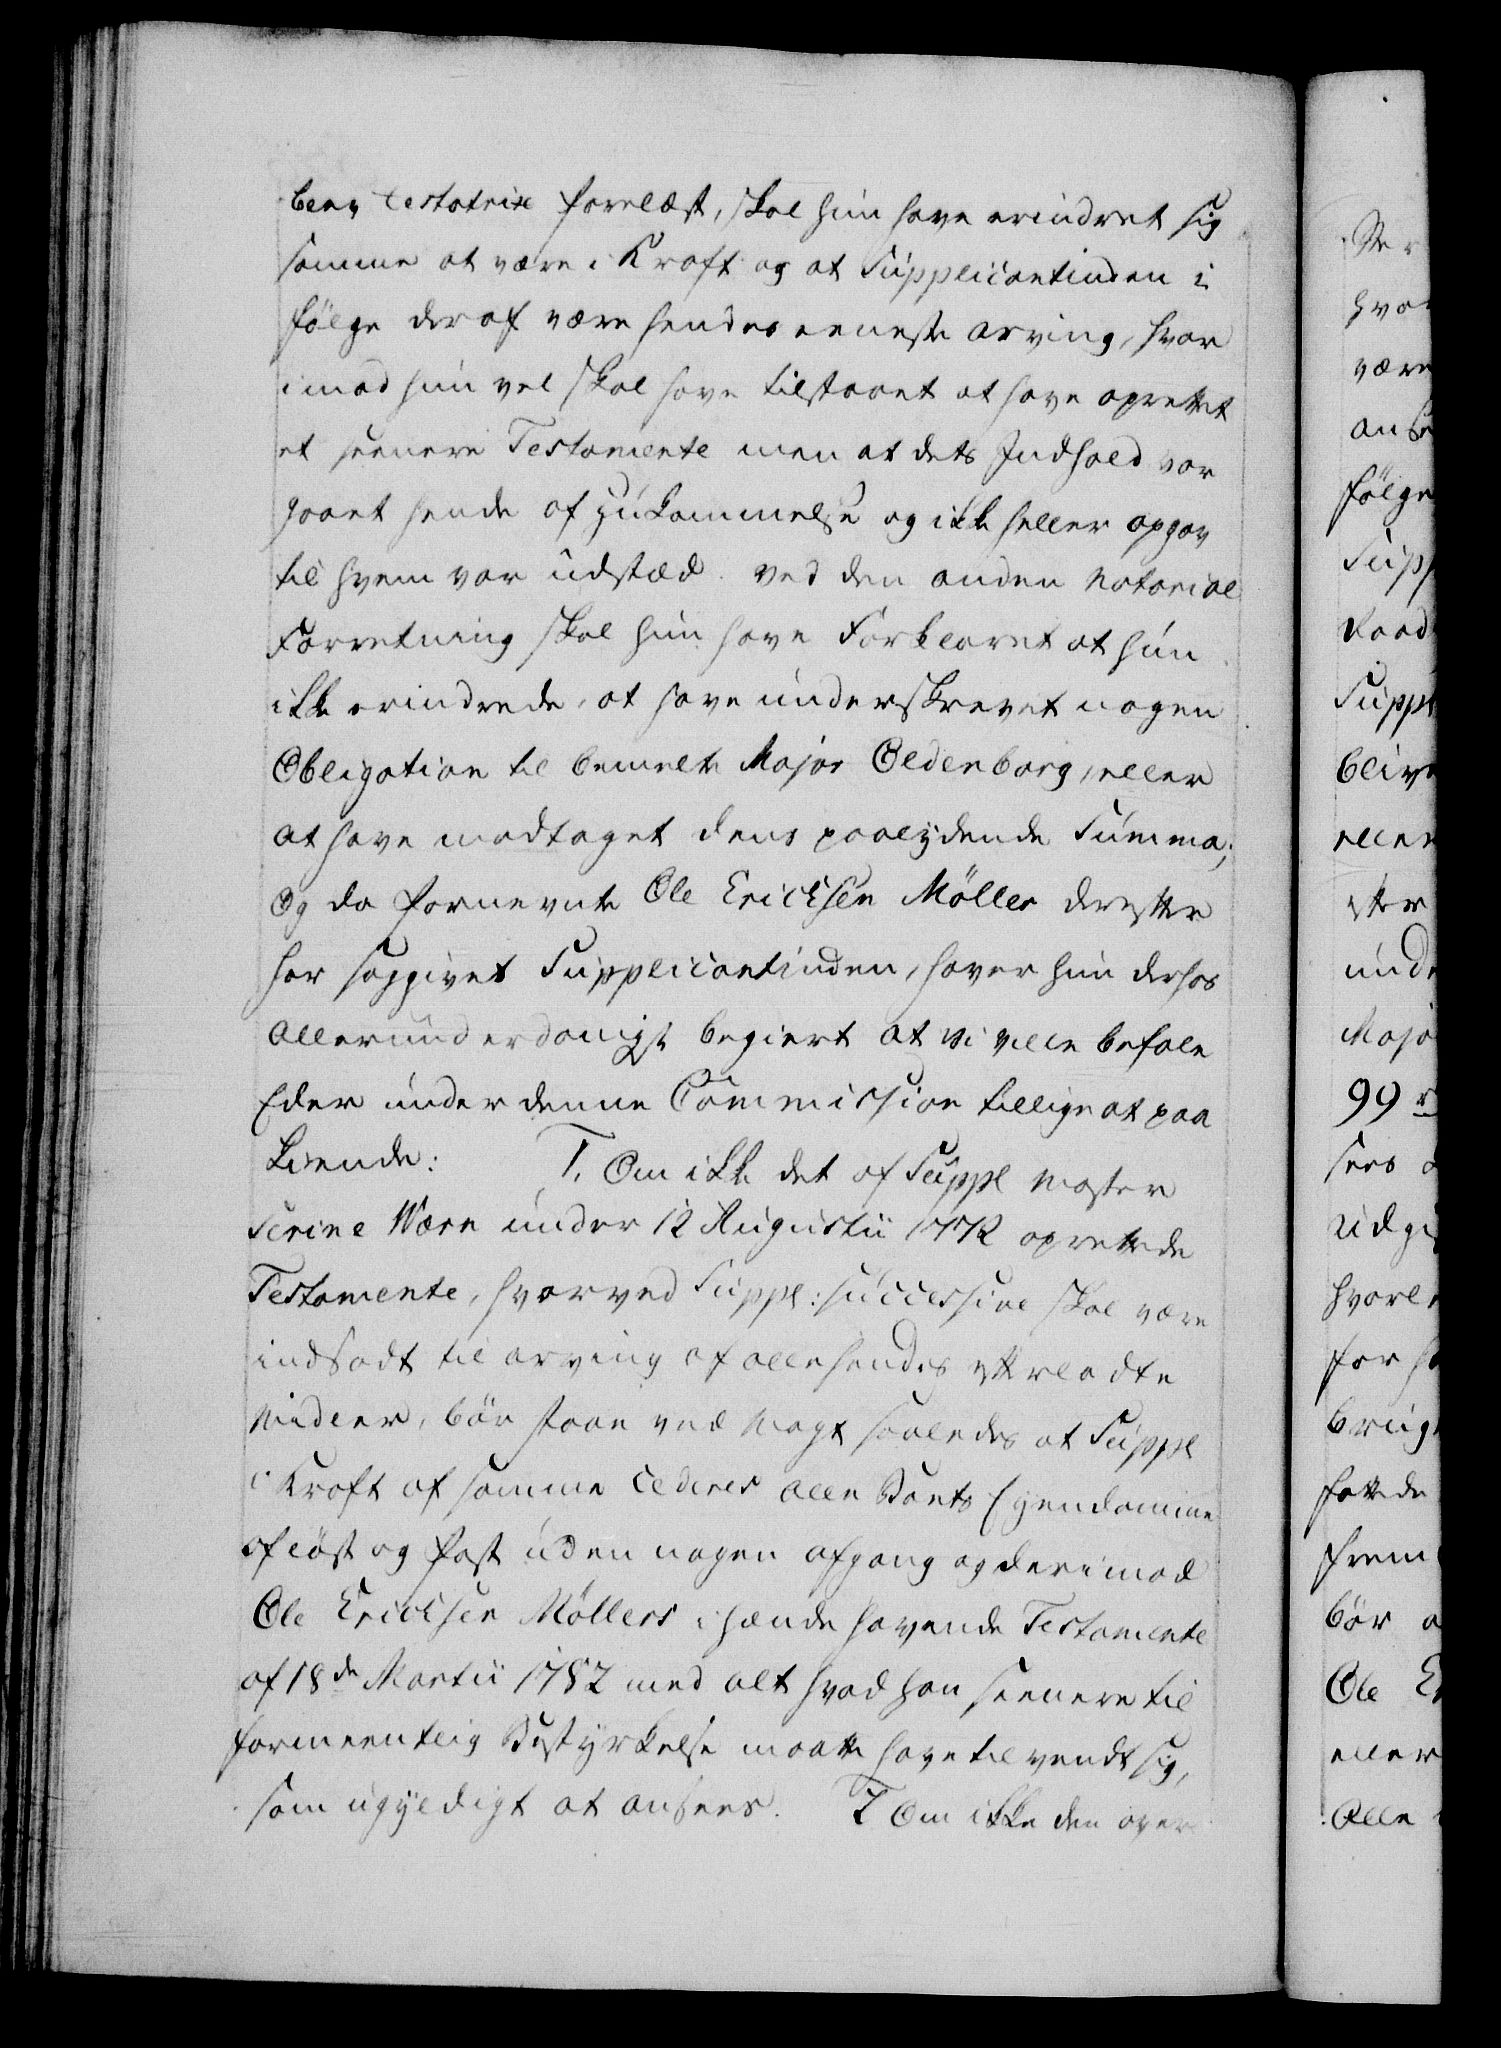 bem: testatrix forelæst, skal hun have erindret sig
samme at være i Kraft og at Supplicantinden i
følge deraf være hendes eeneste arving, hvor
imod hun vel skal have tilstaaet at have oprettet
et seenere Testamente men at dets Indhold var
gaaet hende af Hukommelse og ikke heller opgav
til hvem var udstæd. ved den anden Notorial
Forretning skal hun have Forklaret at hun
ikke erindrede, at have underskrevet nogen
Obligation til bemelte Major Oldenborg, eller
at have modtaget dens paalydende Summa;
Og da fornevnte Ole Ericksen Møller derefter
har sagsøgt Supplicantinden, haver hun derhos
allerunderdanigst begiert at vi ville befale
Eder under denne Commission tillige at paa
kiende: 1. Om ikke det af Suppl Moster
Serine Wærn under 12 Augustii 1772 oprettede
Testamente, hvorved Suppl: successive skal være
indsadt til arving af alle hendes efterladte
Midler, bør staae ved Magt saaledes at Suppl
i Kraft af samme cederes alle Boets Eyendomme
af løst og fast uden nogen afgang og derimod
Ole Ericksen Møllers i hænde havende Testamente
af 18de Martii 1782 med alt hvad han seenere til
formeentlig Bestyrkelse maatte have tilvendt sig,
som ugyldigt at ansees. 2 Om ikke den over
hvor
være
anse
følge
Supp
Raad
Suppl
blive
eller
efter
unde
Majo
99 r
sees
udgi
hvorl
for
brug
fattede
frem
bør
Ole E
eller
Alle